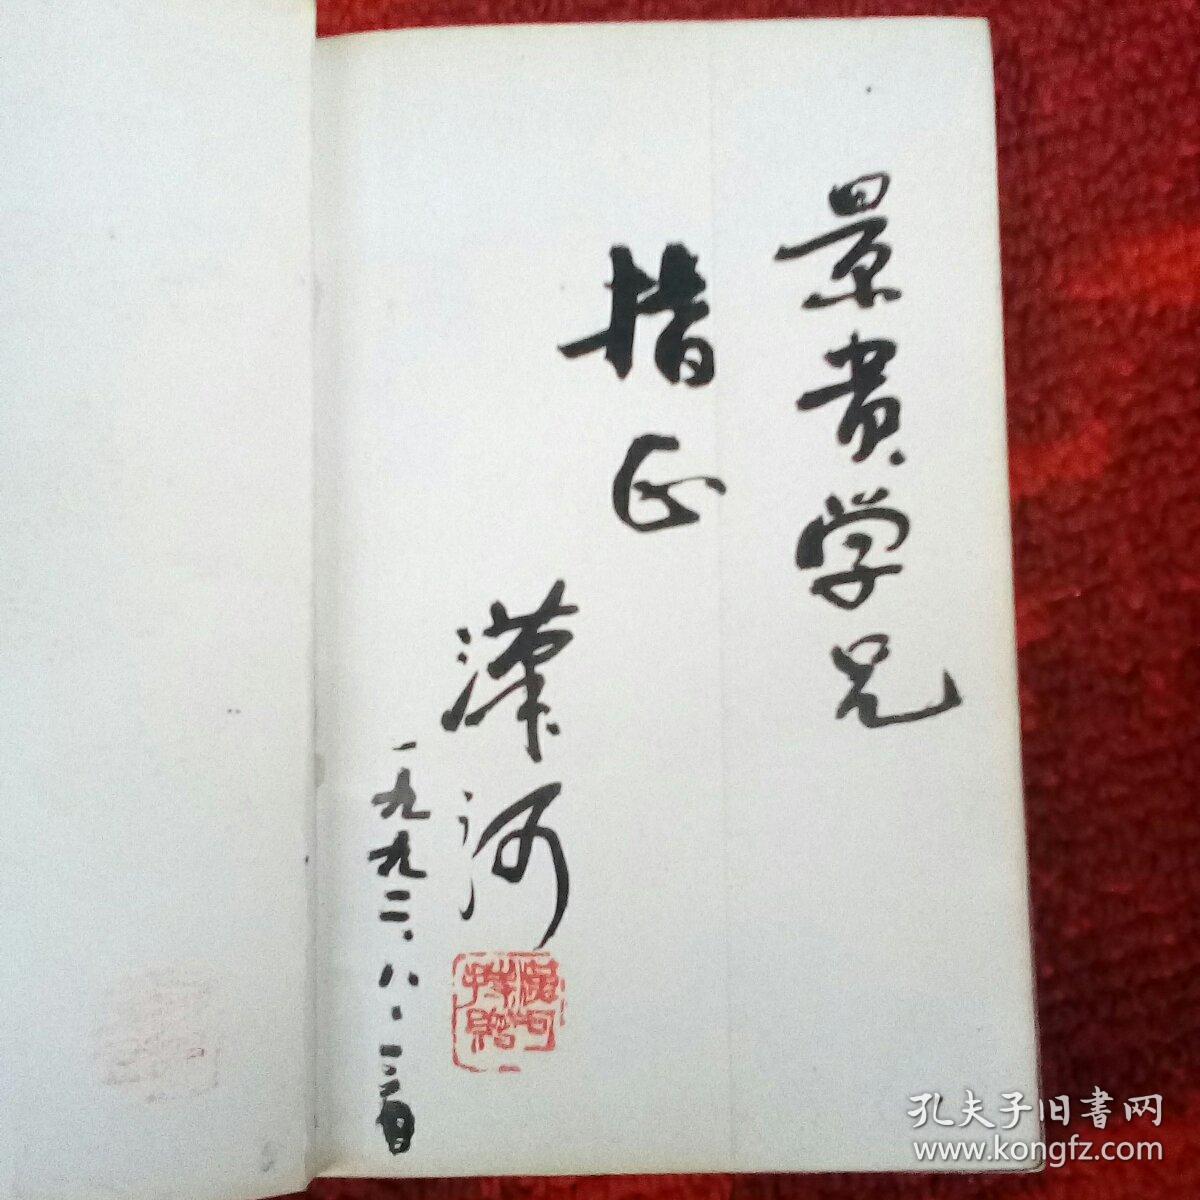 景贵学兄
指正
漢河
一九九二.八.
漢河
持贈
孔夫子旧書网
www.kongfz.com